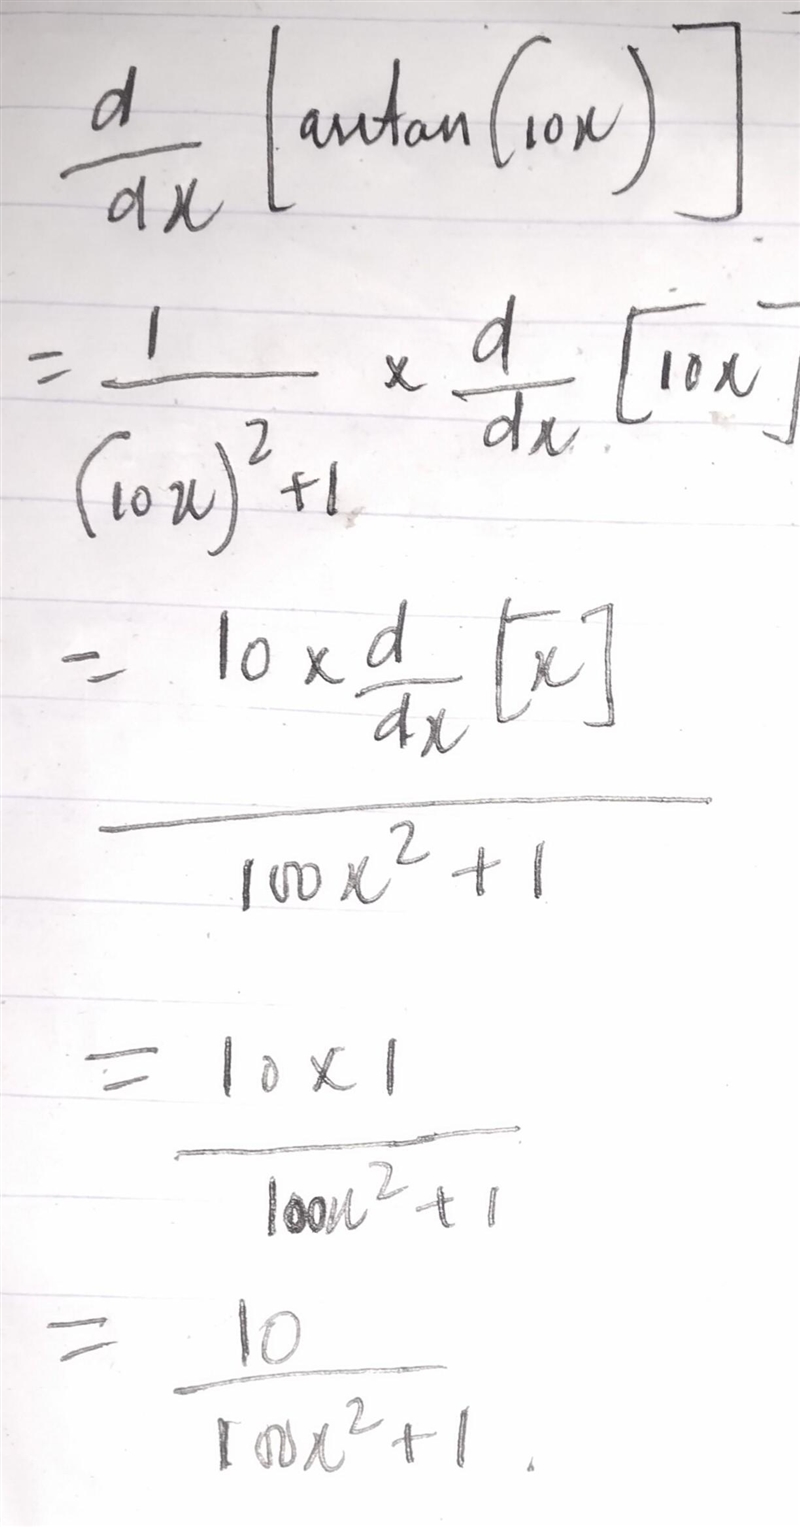 d/dx [arctan(10x)]
= 1/((10x)² + 1) × d/dx [10x]
= (10 × d/dx [x])/(100x² + 1)
= (10 × 1)/(100x² + 1)
= 10/(100x² + 1).